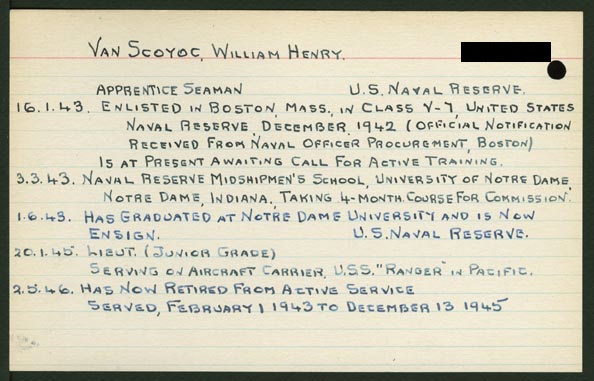 VAN SCOYOC, WILLIAM HENRY.
APPRENTICE SEAMAN U.S. NAVAL RESERVE.
16.1.43. ENLISTED IN BOSTON, MASS., IN CLASS V-7, UNITED STATES
NAVAL RESERVE, DECEMBER, 1942 (OFFICIAL NOTIFICATION
RECEIVED FROM NAVAL OFFICER PROCUREMENT, BOSTON)
IS AT PRESENT AWAITING CALL FOR ACTIVE TRAINING.
3.3.43. NAVAL RESERVE MIDSHIPMEN'S SCHOOL, UNIVERSITY OF NOTRE DAME,
NOTRE DAME, INDIANA, TAKING 4-MONTH COURSE FOR COMMISSION.
1.6.43. HAS GRADUATED AT NOTRE DAME UNIVERSITY AND IS NOW
ENSIGN. U.S. NAVAL RESERVE.
20.1.45. LIEUT. (JUNIOR GRADE)
SERVING ON AIRCRAFT CARRIER, U.S.S. "RANGER" IN PACIFIC.
2.5.46. HAS NOW RETIRED FROM ACTIVE SERVICE
SERVED, FEBRUARY 1 1943 TO DECEMBER 13 1945